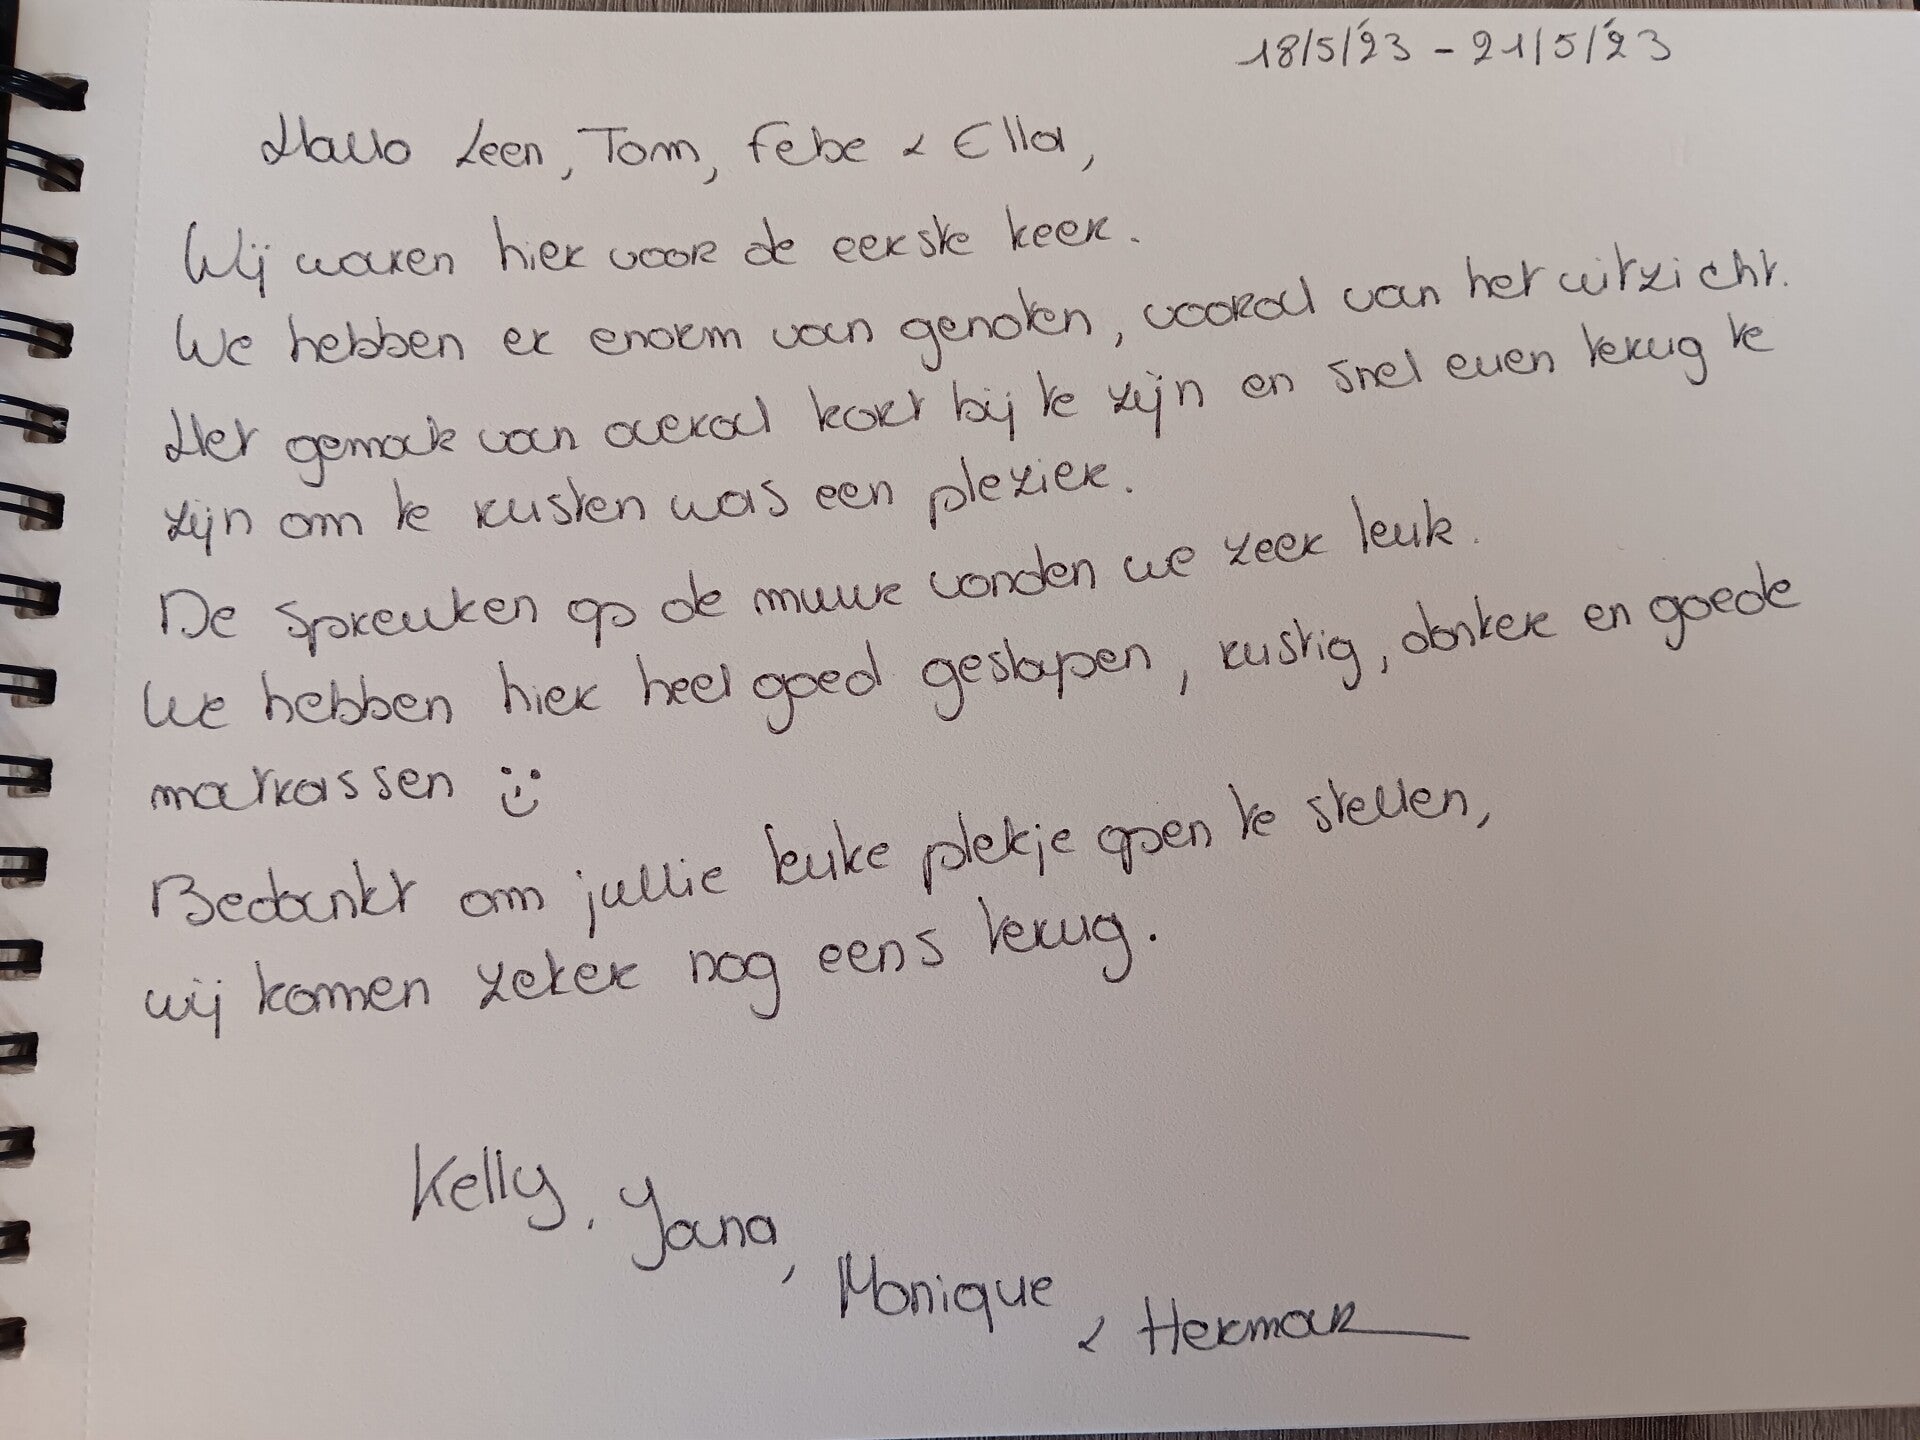 18/5/'23 - 21/5/'23
Hallo Leen, Tom, Febe & Ella,
Wij waren hier voor de eerste keer.
We hebben er enorm van genoten, vooral van het uitzicht.
Het gemak van overal kort bij te zijn en snel even terug te
zijn om te rusten was een plezier.
De spreuken op de muur vonden we zeer leuk.
We hebben hier heel goed geslapen, rustig, donker en goede
matrassen :)
Bedankt om jullie leuke plekje open te stellen,
wij komen zeker nog eens terug.
Kelly, Yana,
Monique
& Herman